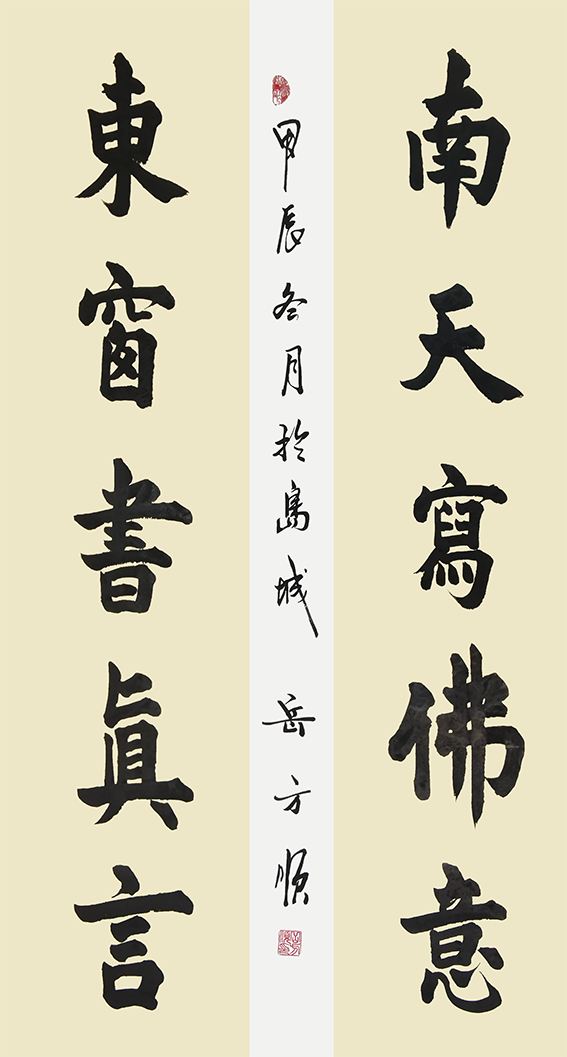 南天寫佛意
甲辰冬月於島城 岳方順
東窗書眞言